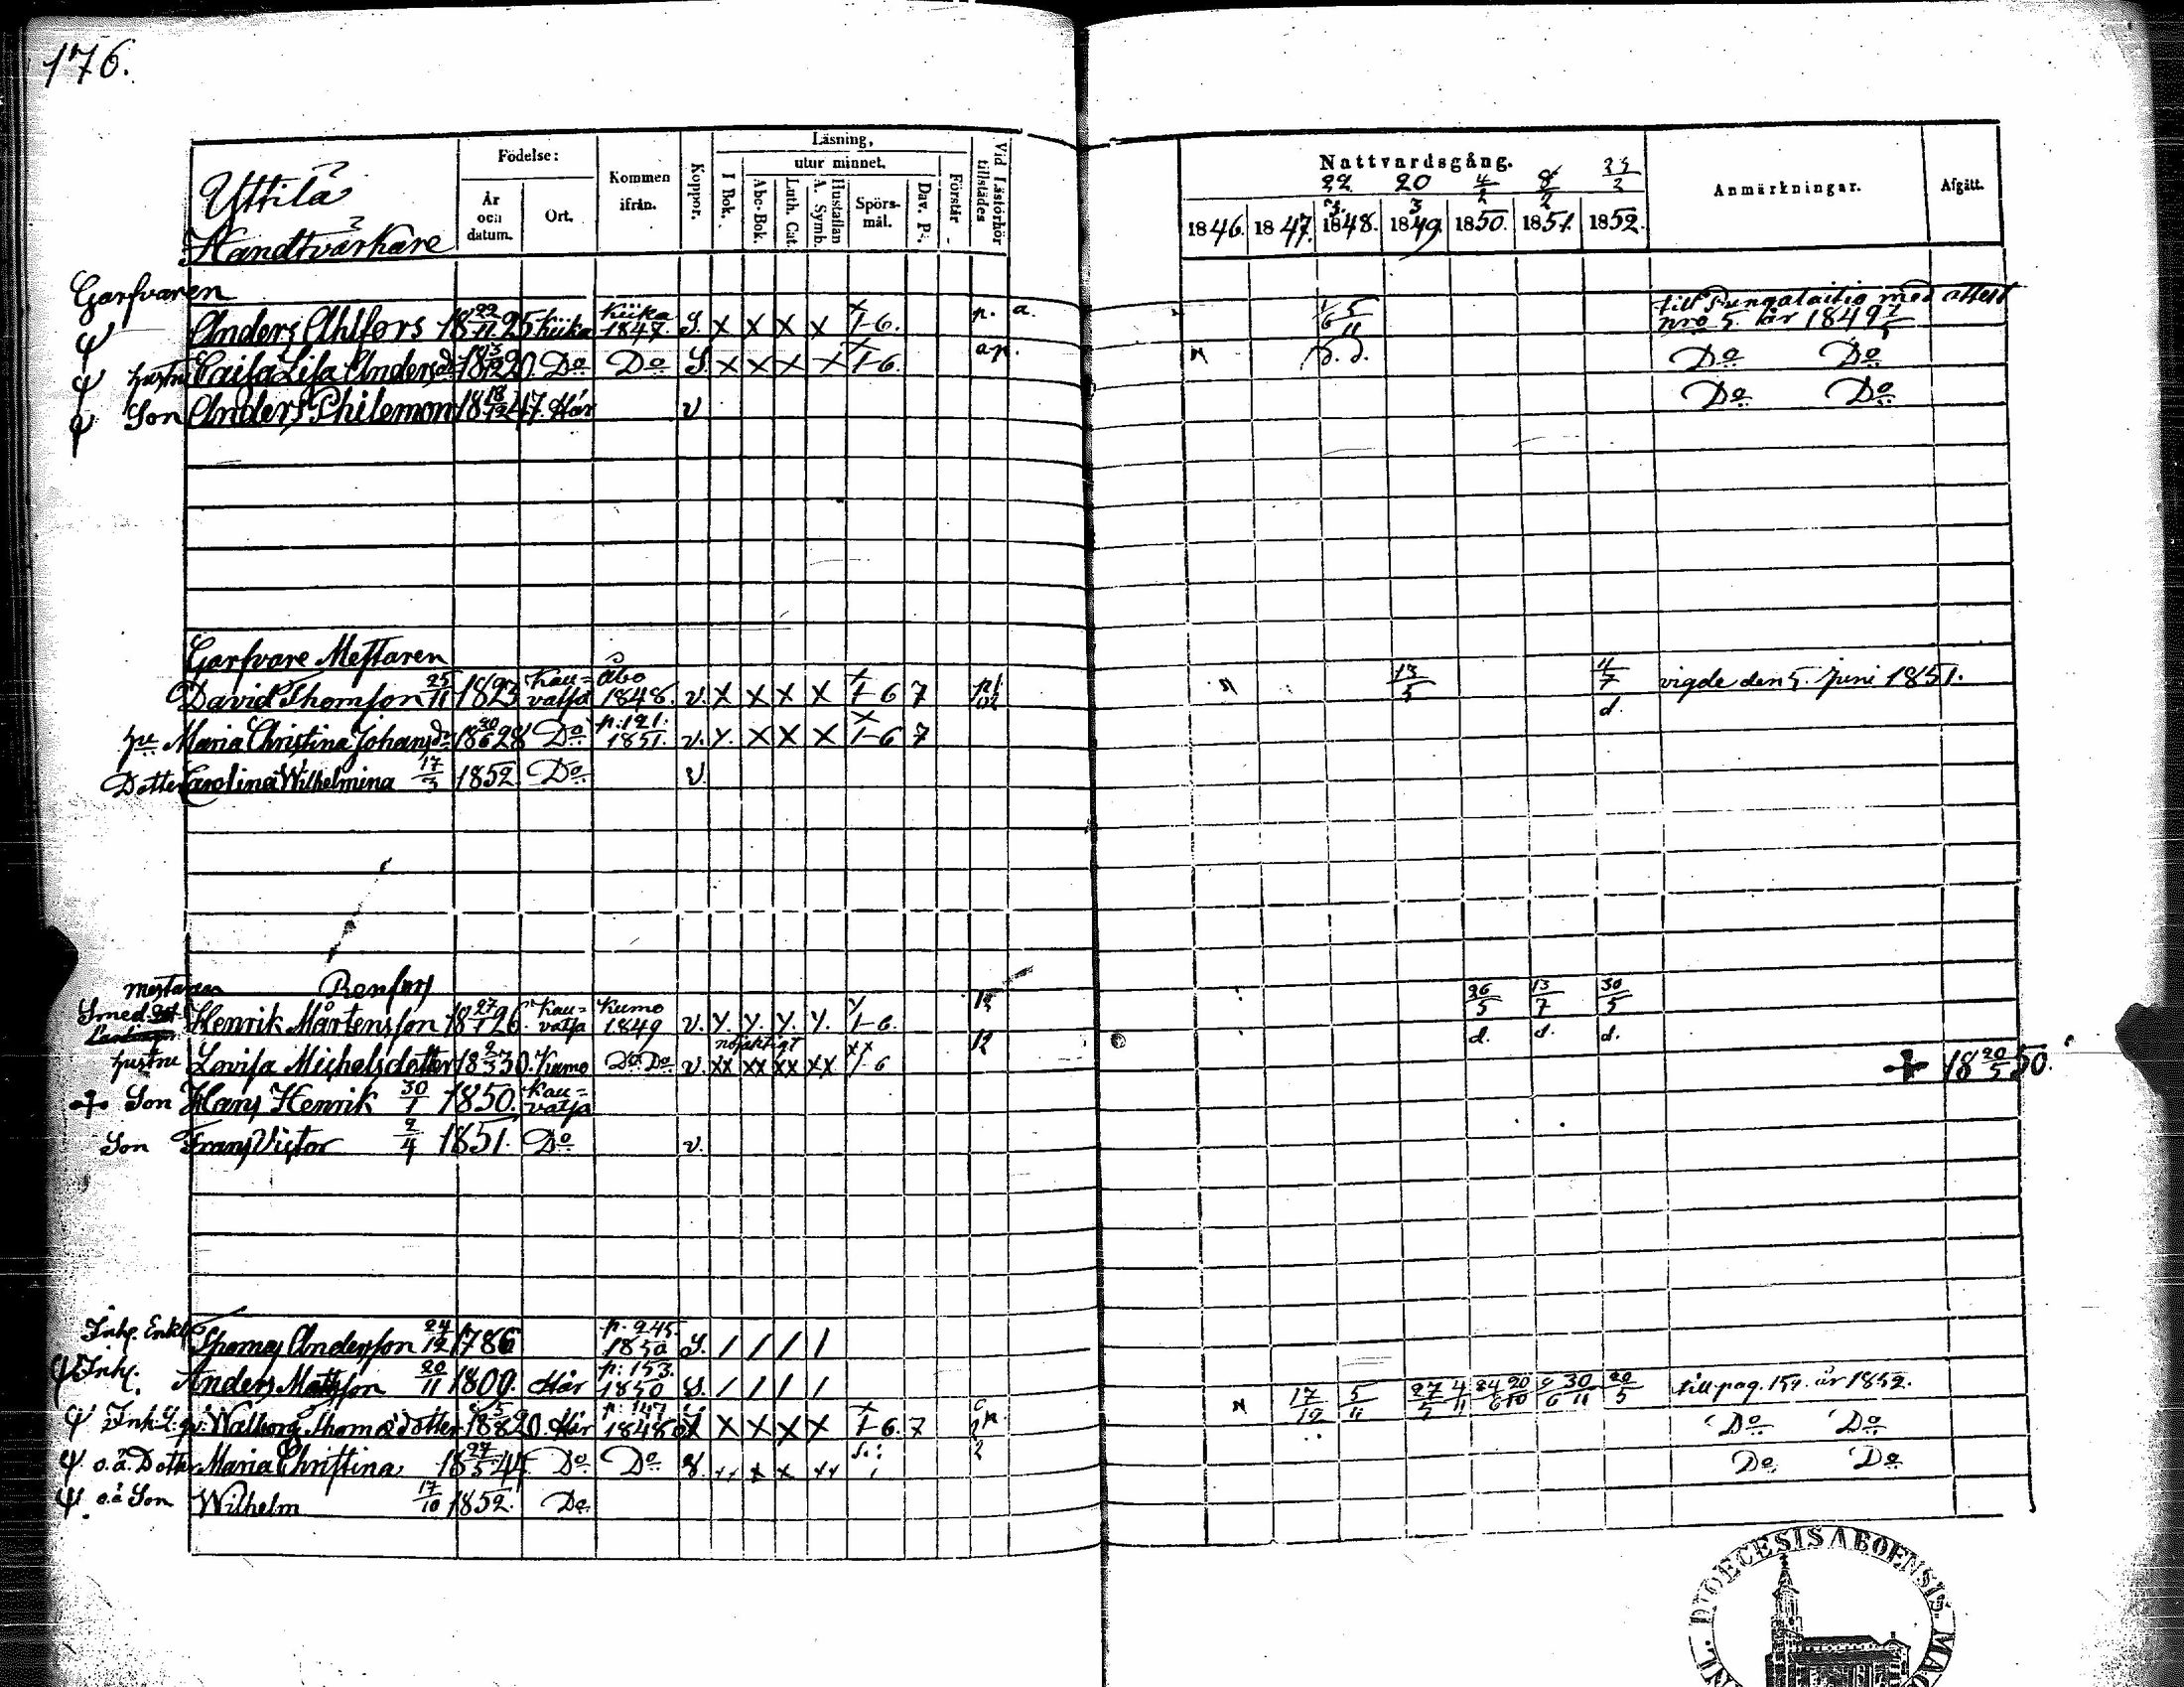 176.
Yttilä
Handtvärkare
Födelse:
År och datum.
Ort.
Kommen ifrån.
Koppor.
Läsning,
utur minnet.
I Bok.
Abc-Bok.
Luth. Cat.
Hustaflan A. Symb.
Spörsmål.
Dav. Ps.
Förstår
Vid Läsförhör tillstädes
Nattvardsgång.
22 20 4/2 8/2 22/2
1846. 1847. 1848. 1849. 1850. 1851. 1852.
Anmärkningar.
Afgått.
Garfvaren
Anders Ahlfors 18 22/11 25 Kiika Kiika 1847. S. x x x x 1-6. p. a. 5/11 till Pungalaitio med attest nro 5. år 1849
hustru Caisa Lisa Andersdr 1820. Do Do S. x x x x 1-6. ap. Do Do
Son Anders Philemon 18 18/12 47. Här v Do Do
Garfvare Mestaren
David Thomson 25/11 1823 Kauvatsa Åbo 1848. v. x x x x 1-6 7 13/5 11/7 vigde den 5. Juni 1851.
d.
hu Maria Christina Johansdr 18 30/6 28 Do p: 121. 1851. v. y. x x x 1-6 7
Dotter Carolina Wilhelmina 17/3 1852. Do v.
mestaren
Smed Henrik Mårtensson 18 27/1 26. Kauvatsa Kumo 1849 v. y. y. y. y. 1-6. 12 26/5 13/7 30/5
d. d. d.
hustru Lovisa Michelsdotter 1830. Kumo Do Do v. xx xx xx xx 1-6 12
+ Son Hans Henrik 30/1 1850. Kauvatsa + 18 20/5 50.
Son Frans Victor 2/4 1851. Do v.
Inh. Enkl. Thomas Andersson 24/12 1786 p. 245. 1850 S. / / / /
Inh. Anders Matsson 20/11 1809. Här p: 153. 1850 S. / / / / 17/12 5/11 27/5 4/11 24/6 20/10 9/6 30/11 20/5 till pag. 159. år 1852.
Walborg Thomadotter 18 5/8 20. Här p: 147 1848 x x x x 1-6. 7 Do Do
o.ä. Dotter Maria Christina 18 27/5 44. Do Do Do Do
o.ä Son Wilhelm 17/10 1852. Do
DIOECESIS ABOENSIS